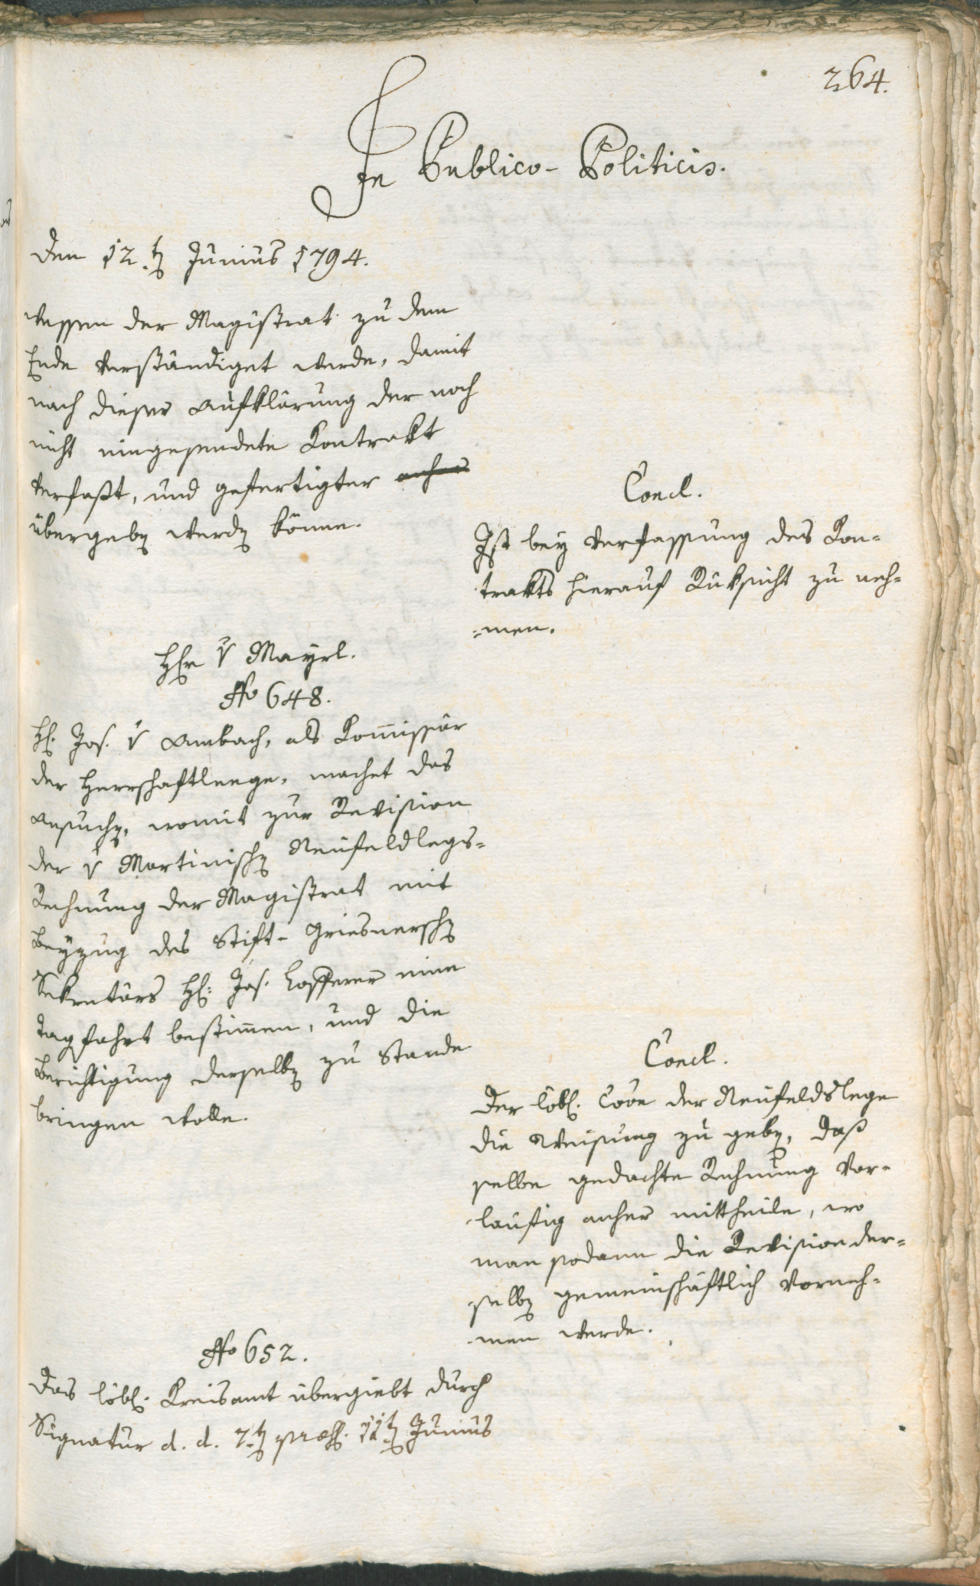 264.
In Publico-Politicis.
Den 12.t Junius 1794.
dessen der Magistrat zu dem
Ende verständiget werde, damit
nach dieser Aufklärung der noch
nicht eingesendete Kontrakt
verfaßt, und gefertigter anher
übergeben werden könne.
Concl.
Ist bey Verfassung des Kon-
trakts hierauf Rüksicht zu neh-
-men.
Hr v Mayrl.
No 648.
H. Jos. v Ambach, als Kommissär
der Herrschaftleege, machet das
Ansuchen, womit zur Revision
der v Martinischen Neufeldlegs-
Rechnung der Magistrat mit
Beyzug des Stift-Griesnerschen
Sekretärs H: Jos. Lofferer eine
Tagfahrt bestimmen, und die
Berichtigung derselben zu Stande
bringen wolle.
Concl.
Der löbl. Coon der Neufeldslege
die Weisung zu geben, daß
selbe gedachte Rechnung vor-
läufig anher mittheile, wo
man sodann die Revision der-
selben gemeinschäftlich vorneh-
men werde.
No 652.
Das löbl. Kreisamt übergiebt durch
Signatur d. d. 7.t præs. 11t Junius